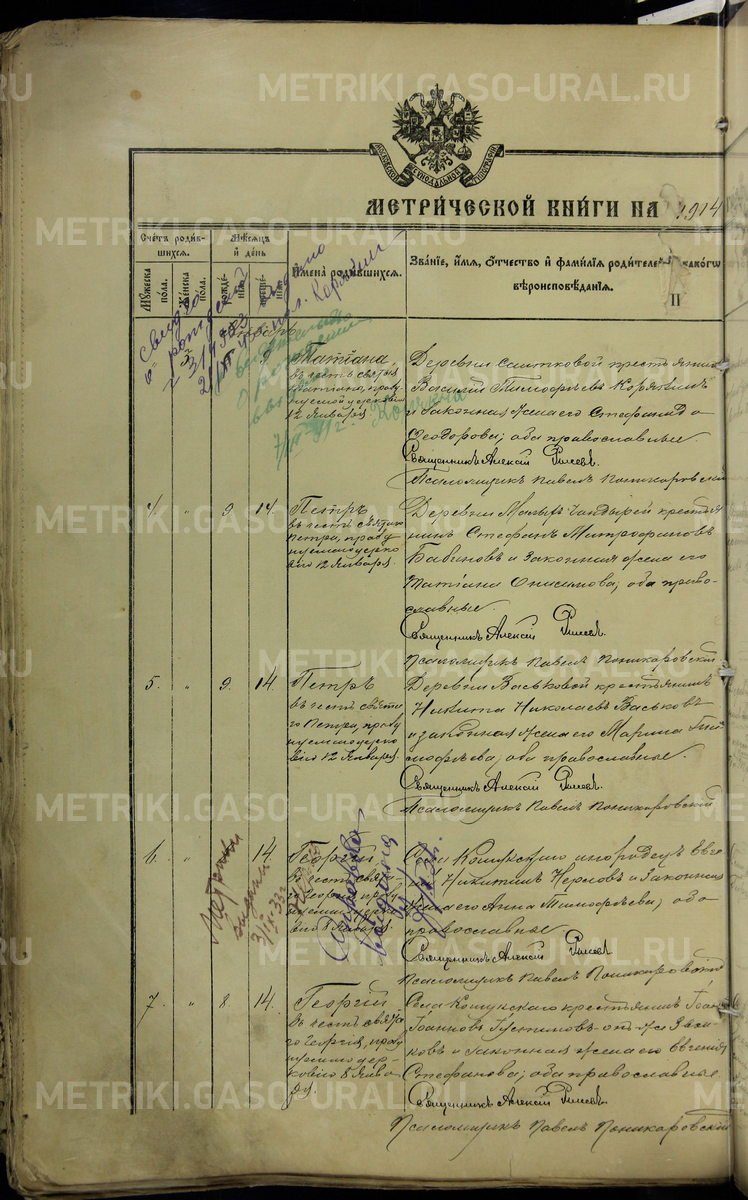 METRIKI.GASO-URAL.RU
МОСКОВСКОЙ СѴНОДАЛЬНОЙ ТИПОГРАФІИ
МЕТРИ́ЧЕСКОЙ КНИ́ГИ НА 1914
Сче́тъ роди́в-
шихся.
Му́жеска пола.
Же́нска пола.
Мѣ́сяцъ
и҆ де́нь
рожде́-
нїя.
креще́-
нїя.
И҆мена̀ роди́вшихся.
Зва́нїе, и҆́мя, ѻ҆́тчество и҆ фами́лїя роди́теле и҆ како́гѡ
вѣроисповѣ́данїя.
П
Январь
3 9 Татіана,
въ честь святыя
Татіаны, празд
нуемой церковію
12 Января.
Деревни Саитковой крестьянинъ
Василій Тимофѣевъ Корякинъ
и законная жена его Стефанида
Ѳеодорова; оба православные
Священникъ Алексій
Псаломщикъ Павелъ Поникаровскій
4. " 9. 14. Петръ
въ честь святаго
Петра, празд
нуемаго церко
вію 12 Января.
Деревни Малыя Чандыри крестья
нинъ Стефанъ Митрофановъ
Бабиновъ и законная жена его
Татіана Онисимова; оба право-
славные.
Священникъ Алексій
Псаломщикъ Павелъ Поникаровскій
5. " 9. 14. Петръ
въ честь свята
го Петра, празд
нуемаго церко
вію 12 Января.
Деревни Васьковой крестьянинъ
Никита Николаевъ Васьковъ
и законная жена его Марина Ти
мофѣева; оба православные.
Священникъ Алексій
Псаломщикъ Павелъ Поникаровскій
6. " 14. Георгій
въ честь свята
го Георгія, празд
нуемаго церко
вію 8 Января.
Села Кошукскаго инородецъ Евге
ній Никитинъ и законная
жена его Анна Тимофѣева; оба
православные
Священникъ Алексій
Псаломщикъ Павелъ Поникаровскій
Метрик
выдан
3/IX-33г
7. " 8. 14. Георгій
въ честь свята
го Георгія, празд
нуемаго цер-
ковію 8 Янва-
ря.
Села Кошукскаго крестьянинъ Іоаннъ
Іоанновъ Густиновъ онъ же
и законная жена его Евгенія
Стефанова; оба православные
Священникъ Алексій
Псаломщикъ Павелъ Поникаровскій